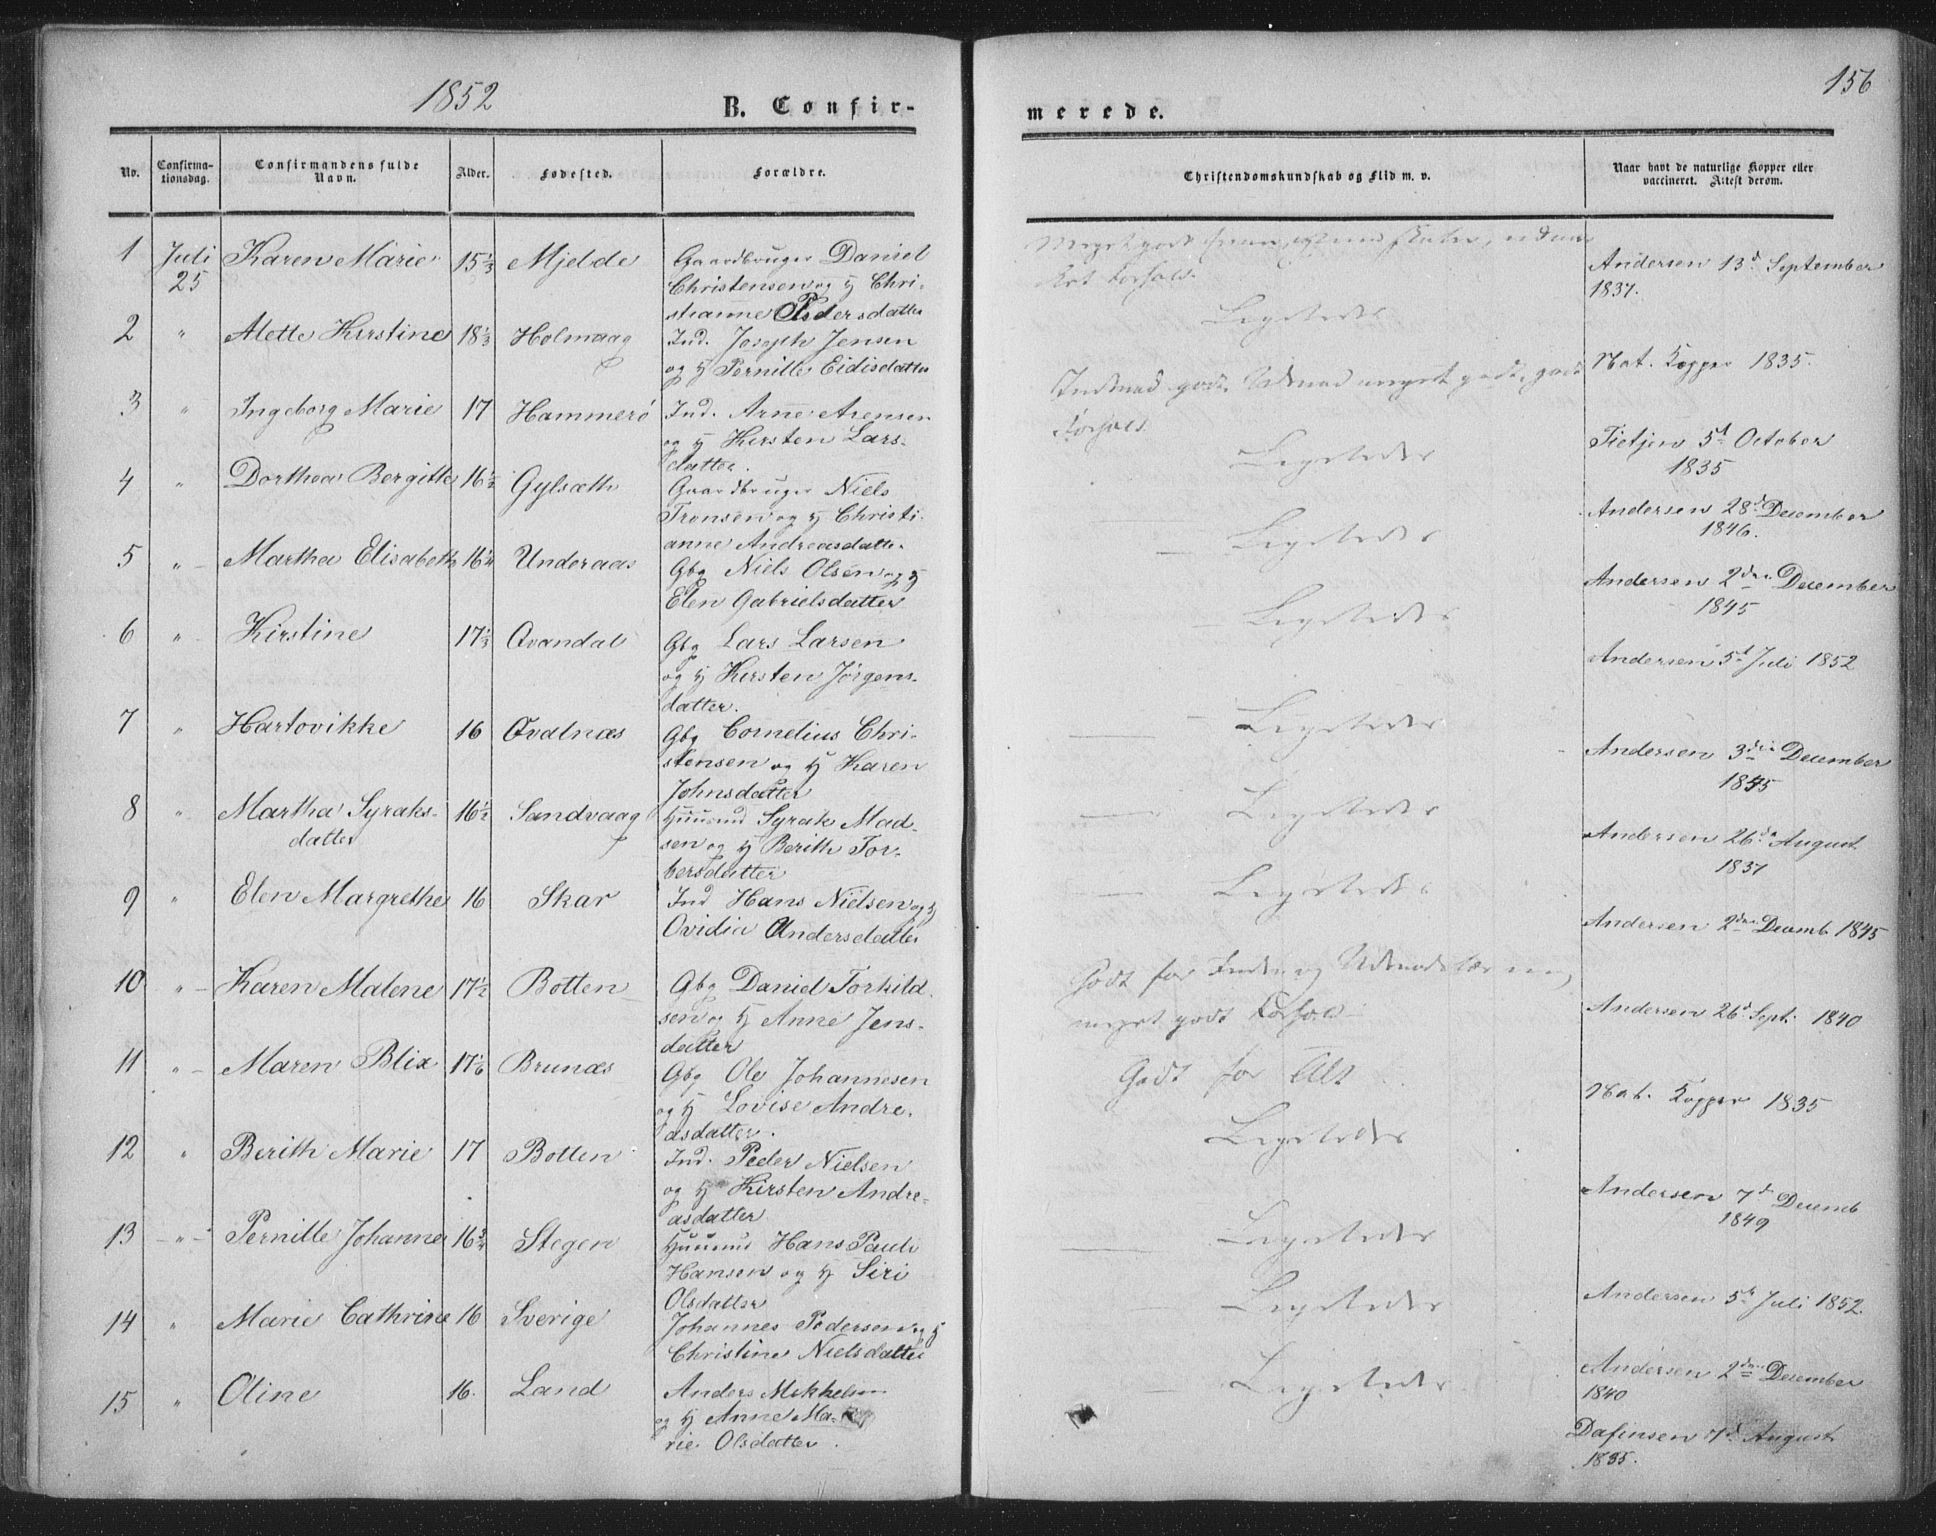 1852
B. Confir-
merede.
156
No.
Confirma-
tionsdag.
Confirmandens fulde
Navn.
Alder.
Fødested.
Forældre.
Christendomskundskab og Flid m. v.
Naar havt de naturlige Kopper eller
vaccineret. Attest derom.
1 Juli 25 Karen Marie 15 1/3 Mjelde
Gaardbruger Daniel
Christensen og H Chri-
stianne Pedersdatter
Meget godt
Andersen 13d September
1837.
2 " Alette Kirstine 18 1/3 Holmaag
Ind. Joseph Jensen
og H Pernille Eidisdatter
Ligeledes
Nat. Kopper 1835.
3 " Ingeborg Marie 17 Hammerö
Ind. Arne Arensen
og H Kirsten Lars-
datter.
Indvad godt, Udvad meget godt, godt
Forhold
Tietjen 5t October
1835
4 " Dorthea Bergitte 16 1/2 Gylsæth
Gaardbruger Niels
Tronsen og H Christi-
anne Andreasdatter
Ligeledes
Andersen 28d December
1846.
5 " Martha Elisabeth 16 1/4 Underaas
Gbg Niels Olsen og H
Elen Gabrielsdatter
Ligeledes
Andersen 2den December
1845
6 " Kirstine 17 1/3 Qvandal
Gbg Lars Larsen
og H Kirsten Jörgens-
datter.
Ligeledes
Andersen 5t Juli 1852
7 " Hartvikke 16 Qvalnæs
Gbg Cornelius Chri-
stensen og H Karen
Johnsdatter
Ligeledes
Andersen 3die December
1845
8 " Martha Syraks-
datter 16 1/2 Sandvaag
Huusmd Syrak Mad-
sen og H Berith Tor-
bersdatter
Ligeledes
Andersen 26d August
1837
9 " Elen Margrethe 16 Skar
Ind Hans Nielsen og H
Ovidia Andersdatter
Ligeledes
Andersen 2den Decemb. 1845
10 " Karen Malene 17 1/2 Botten
Gbg Daniel Torkild-
sen og H Anne Jens-
datter
Godt for
meget godt Forhold
Andersen 26d Sept. 1840
11 " Maren Blix 17 1/6 Brunæs
Gbg Ole Johannesen
og H Lovise Andre-
asdatter.
Godt for Alt
Nat. Kopper 1835
12 " Berith Marie 17 Botten
Ind. Peder Nielsen
og H Kirsten Andre-
asdatter
Ligeledes
Andersen 7d Decemb
1849
13 " Pernille Johanne 16 3/4 Stegen
Huusmd Hans Pauli
Hansen og H Siri
Olsdatter
Ligeledes
Andersen 5t Juli 1852.
14 " Marie Cathrine 16 Sverige
Johannes Pedersen og H
Christine Nielsdatter
Ligeledes
Andersen 2den December
1840
15 " Oline 16. Land
Anders Mikkelsen
og H Anne Ma-
rie Olsdatter.
Ligeledes
Dafinsen 7d August
1835.